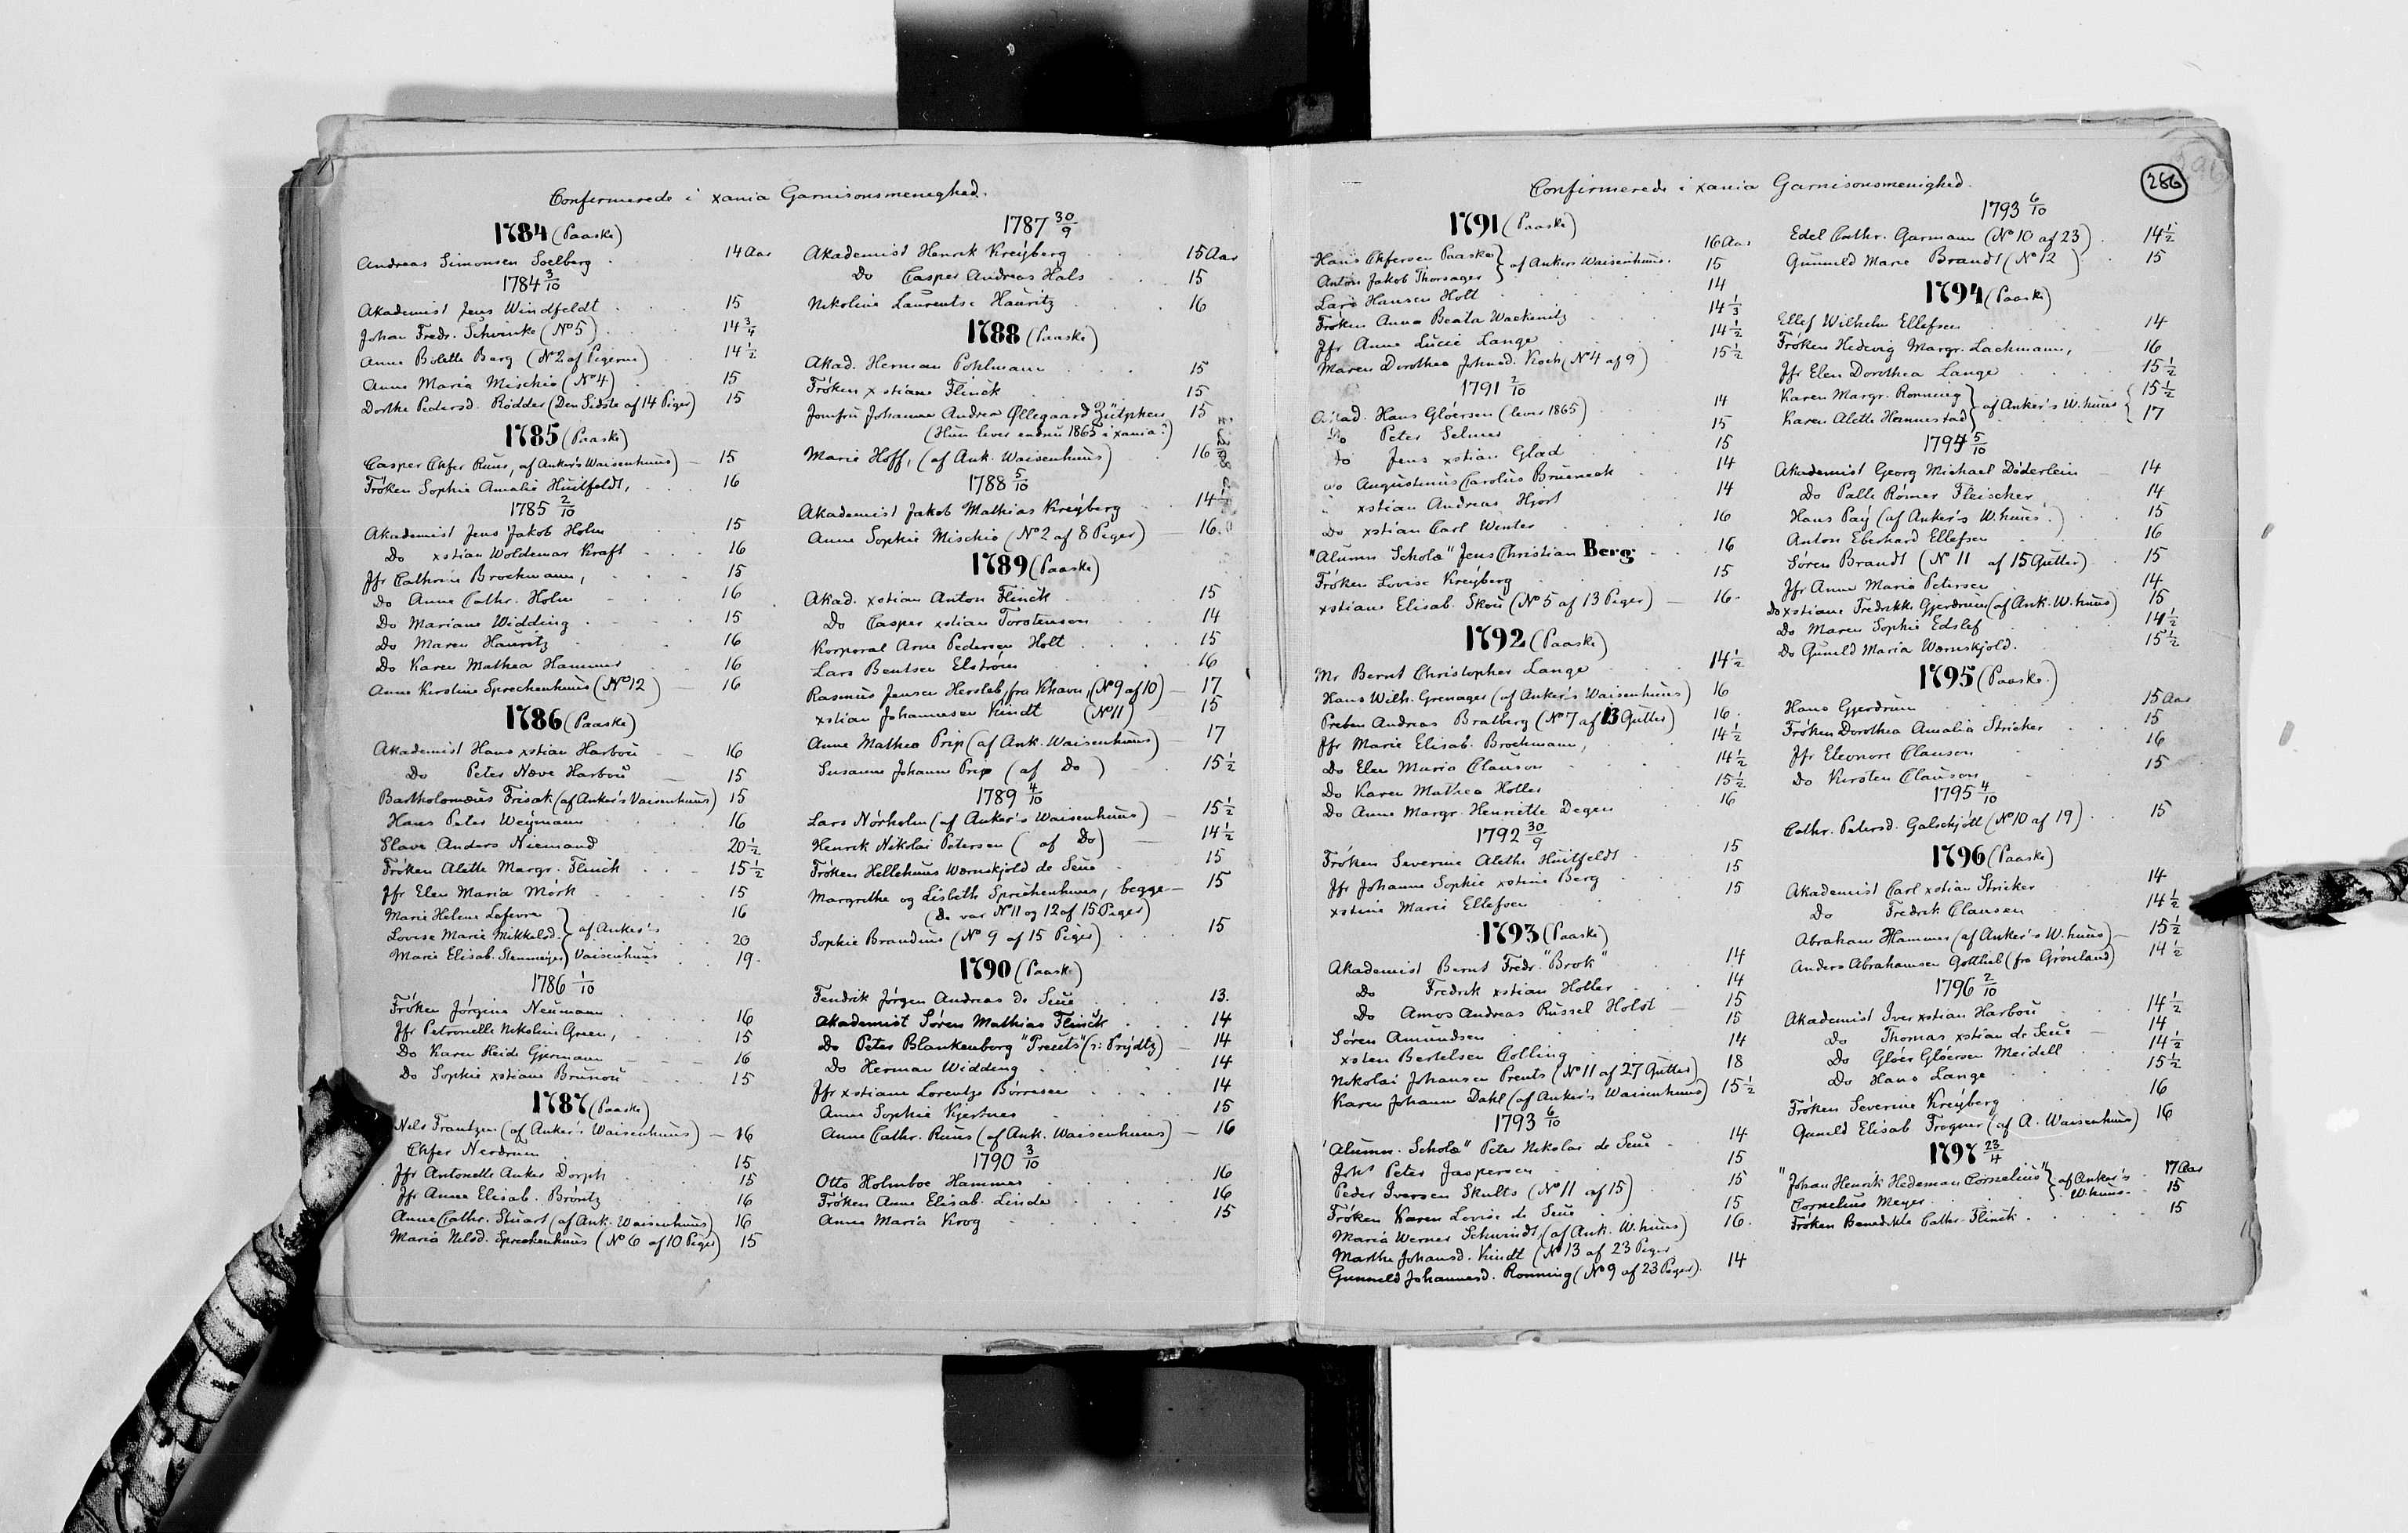 Confirmerede i xania Garnisonsmenighed.
1784 (Paaske)
Andreas Simonsen Soelberg . 14 Aar
1784 3/10
Akademist Jens Windfeldt . . 15
Johan Fredr. Schwinke (No 5) . . 14 3/4
Anne Bolette Berg (No 2 af Pigerne) . 14 1/2
Anne Maria Mischio (No 4) . . 15
Dorthe Pedersd. Rödder (Den Sidste af 14 Piger) 15
1785 (Paaske)
Casper Chfer Ruus, af Anker's Waisenhuus) — 15
Fröken Sophie Amalie Huitfeldt, . . 16
1785 2/10
Akademist Jens Jakob Holm . . 15
Do xstian Woldemar Kraft . . 16
Jfr Cathrine Brockmann, . . 15
Do Anne Cathr. Holm . . 16
Do Mariane Widding . . 15
Do Maren Hauritz . . 16
Do Karen Mathea Hammer . . 16
Anne Kirstine Sprechenhuus (No 12) — 16
1786 (Paaske)
Akademist Hans xstian Harbou — 16
Do Peter Næve Harbou — 15
Bartholomæus Frisak (af Anker's Vaisenhuus) 15
Hans Peter Weymann . . 16
Slave Anders Niemand . . 20 1/2
Fröken Alette Margr. Flinck . . 15 1/2
Jfr Elen Maria Mörk . . 15
Marie Helene Lefevre } 16
Lovise Marie Mikkelsd. } af Anker's . 20
Marie Elisab. Stenmeyer } Vaisenhuus . 19.
1786 1/10
Fröken Jörgine Neumann . . 16
Jfr Petronelle Nikoline Green, . . 15
Do Karen Heide Gjermann — 16
Do Sophie xstiane Brunou . . 15
1787 (Paaske)
Nils Frantzen (af Anker's Waisenhuus) — 16
Chfer Nerdrum . . 15
Jfr Antonette Anker Dorph . . 15
Jfr Anne Elisab. Bröntz . . 16
Anne Cathr. Stuart (af Ank. Waisenhuus) 16
Maria Nilsd. Spreckenhuus (No 6 af 10 Piger) 15
1787 30/9
Akademist Henrik Kreyberg . . 15 Aar
Do Casper Andreas Hals . . 15
Nikoline Laurentse Hauritz . . 16
1788 (Paaske)
Akad. Herman Pohlmann . . 15
Fröken xstiane Flinck . . 15
Jomfru Johanne Andrea Øllegaard Zütphen 15
(Hun lever endnu 1865 i xania?)
Marie Hoff, (af Ank. Waisenhuus) . 16
1788 5/10
Akademist Jakob Mathias Kreyberg . . 14 1/2
Anne Sophie Mischio (No 2 af 8 Piger) — 16.
1789 (Paaske)
Akad. xstian Anton Flinck . . 15
Do Casper xstian Torstenson . . 14
Korporal Arne Pedersen Holt . . 15
Lars Bentsen Elström . . 16
Rasmus Jensen Hersleb, fra Khavn, (No 9 af 10) — 17
xstian Johannesen Kindt (No 11) 15
Anne Mathea Prip (af Ank. Waisenhuus) — 17
Susanne Johanne Prip (af Do) . 15 1/2
1789 4/10
Lars Nörholm (af Anker's Waisenhuus) — 15 1/2
Henrik Nikolai Petersen (af Do) — 14 1/2
Fröken Hellehuus Wernskjold de Seue . 15
Margrethe og Lisbeth Sprechenhuus, begge — 15
(De var No 11 og 12 af 15 Piger)
Sophie Brandius (No 9 af 15 Piger) . . 15
1790 (Paaske)
Fendrik Jörgen Andreas de Seue . . 13.
Akademist Sören Mathias Flinck . . 14
Do Peter Blankenborg "Preuts" (ɔ: Prydtz) — 14
Do Herman Widding . . 14
Jfr xstiane Lorentze Börresen . . 14
Anne Sophie Kjertnes . . 15
Anne Cathr. Ruus (af Ank. Waisenhuus) — 16
1790 3/10
Otto Holmboe Hammer . . 16
Fröken Anne Elisab. Linde . . 16
Anne Maria Krog . . 15
266
Confirmerede i xania Garnisonsmenighed.
1791 (Paaske)
Hans Chfersen Paaske } af Ankers Waisenhuus. 16 Aar
Anton Jakob Thorsager } 15
Lars Hansen Holt . . 14
Fröken Anna Beata Wackenitz . . 14 1/3
Jfr Anne Lucie Lange . . 14 1/2
Maren Dorothea Johnsd. Koch (No 4 af 9) 15 1/2
1791 2/10
Akad. Hans Glöersen (lever 1865) . . 14
Do Peter Selmer . . 15
Do Jens xstian Glad . . 15
Do Augustinus Carolus Brueneck . 14
" xstian Andreas Hjort . . 14
Do xstian Carl Winter . . 16
"Alumn. Scholæ" Jens Christian Berg . . 16
Fröken Lovise Kreyberg . . 15
xstiane Elisab. Skou (No 5 af 13 Piger) — 16.
1792 (Paaske)
Mr Bernt Christopher Lange . . 14 1/2
Hans Wilh. Grenager (af Anker's Waisenhuus) 16
Preben Andreas Bratberg (No 7 af 13 Gutter) 16.
Jfr Marie Elisab. Brochmann, . . 14 1/2
Do Elen Maria Clauson . . 14 1/2
Do Karen Mathea Holter . . 15 1/2
Do Anne Margr. Henriette Degen . 16
1792 30/9
Fröken Severine Alethe Huitfeldt . 15
Jfr Johanne Sophie xstine Berg . 15
xstine Marie Ellefsen . . 15
1793 (Paaske)
Akademist Bernt Fredr. "Brok" . . 14
Do Fredrik xstian Holter . . 14
Do Amos Andreas Russel Holst — 15
Sören Amundsen . . 15
xsten Bertelsen Colling . . 14
Nikolai Johansen Preuts (No 11 af 27 Gutter) 18
Karen Johanne Dahl (af Anker's Waisenhuus) 15 1/2
1793 6/10
"Alumn. Scholæ" Peter Nikolai de Seue . 14
Johs Peter Jaspersen . . 15
Peder Iversen Skults (No 11 af 15) . 15
Fröken Karen Lovise de Seue . . 15
Maria Werner Schwindt, (af Ank. W.huus) 16.
Marthe Johansd. Kindt (No 13 af 23 Piger
Gunneld Johannesd. Ronning (No 9 af 23 Piger). 14
1793 6/10
Edel Cathr. Garmann (No 10 af 23) . 14 1/2
Gunneld Marie Brandt (No 12) . 15
1794 (Paaske)
Ellef Wilhelm Ellefsen . . 14
Fröken Hedevig Margr. Lachmann, 16
Jfr Elen Dorothea Lange . . 15 1/2
Karen Margr. Ronning } af Anker's W.huus { 15 1/2
Karen Alette Hennestad } { 17
1794 5/10
Akademist Georg Michael Döderlein — 14
Do Palle Römer Fleischer . 14
Hans Pay (af Anker's W.huus.) . 15
Anton Eberhard Ellefsen . 16
Sören Brandt (No 11 af 15 Gutter) . 15
Jfr Anne Maria Petersen . 14
Do xstiane Fredrikke Gjerdrum (af Ank. W.huus) 15
Do Maren Sophie Edslef . . 14 1/2
Do Guneld Maria Wærnskjold . 15 1/2
1795 (Paaske.)
Hans Gjerdrum . . 15 Aar
Fröken Dorothea Amalia Stricker . . 15
Jfr Eleonore Clauson . . 16
Do Kirsten Clauson . . 15
1795 4/10
Cathr. Petersd. Galschjött (No 10 af 19) . 15
1796 (Paaske)
Akademist Carl xstian Stricker . . 14
Do Fredrik Clausen . . 14 1/2
Abraham Hammer (af Anker's W.huus) — 15 1/2
Anders Abrahamsen Gottlieb (fra Grönland) 14 1/2
1796 2/10
Akademist Iver xstian Harbou . . 14 1/2
Do Thomas xstian de Seue — 14
Do Glöer Glöersen Meidell . . 14 1/2
Do Hans Lange . . 15 1/2
Fröken Severine Kreyberg . . 16
Guneld Elisab Frogner (af A. Waisenhuus) 16
1797 23/4
"Johan Henrik Hedeman Cornelius" } af Anker's . 17 Aar
Cornelius Meyer . . } W.huus. . 15
Fröken Benedikte Cathr. Flinck . . 15